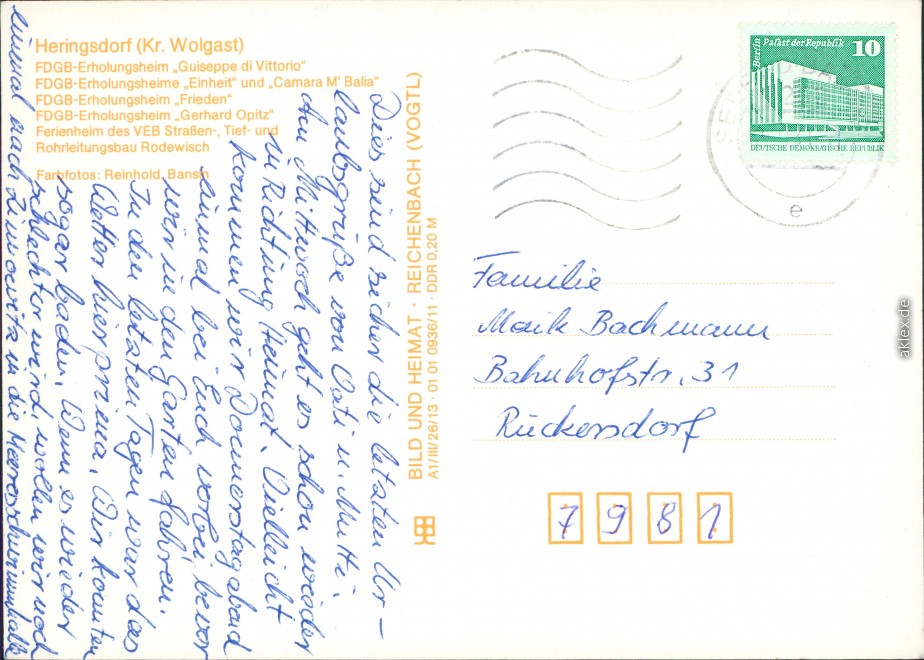 Heringsdorf (Kr. Wolgast)
FDGB-Erholungsheim „Guiseppe di Vittorio"
FDGB-Erholungsheime „Einheit" und „Camara M' Balia"
FDGB-Erholungsheim „Frieden"
FDGB-Erholungsheim „Gerhard Opitz"
Ferienheim des VEB Straßen-, Tief- und
Rohrleitungsbau Rodewisch
Farbfotos: Reinhold, Bansin
Dies sind sicher die letzten Ur-
laubsgrüße von Vati u. Mutti.
Am Mittwoch geht es schon wieder
in Richtung Heimat. Vielleicht
kommen wir Donnerstagabend
einmal bei Euch vorbei, bevor
wir in den Garten fahren.
In den letzten Tagen war das
Wetter hier prima. Wir konnten
sogar baden. Wenn es wieder
schlechter wird, wollen wir noch
einmal nach Zinnowitz in die Meeresschwimmhalle
BILD UND HEIMAT · REICHENBACH (VOGTL)
A1/III/26/13 · 01 01 0936/11 · DDR 0,20 M
Berlin Palast der Republik 10
DEUTSCHE DEMOKRATISCHE REPUBLIK
e
Familie
Maik Bachmann
Bahnhofstr. 31
Rückersdorf
7981
aklex.de